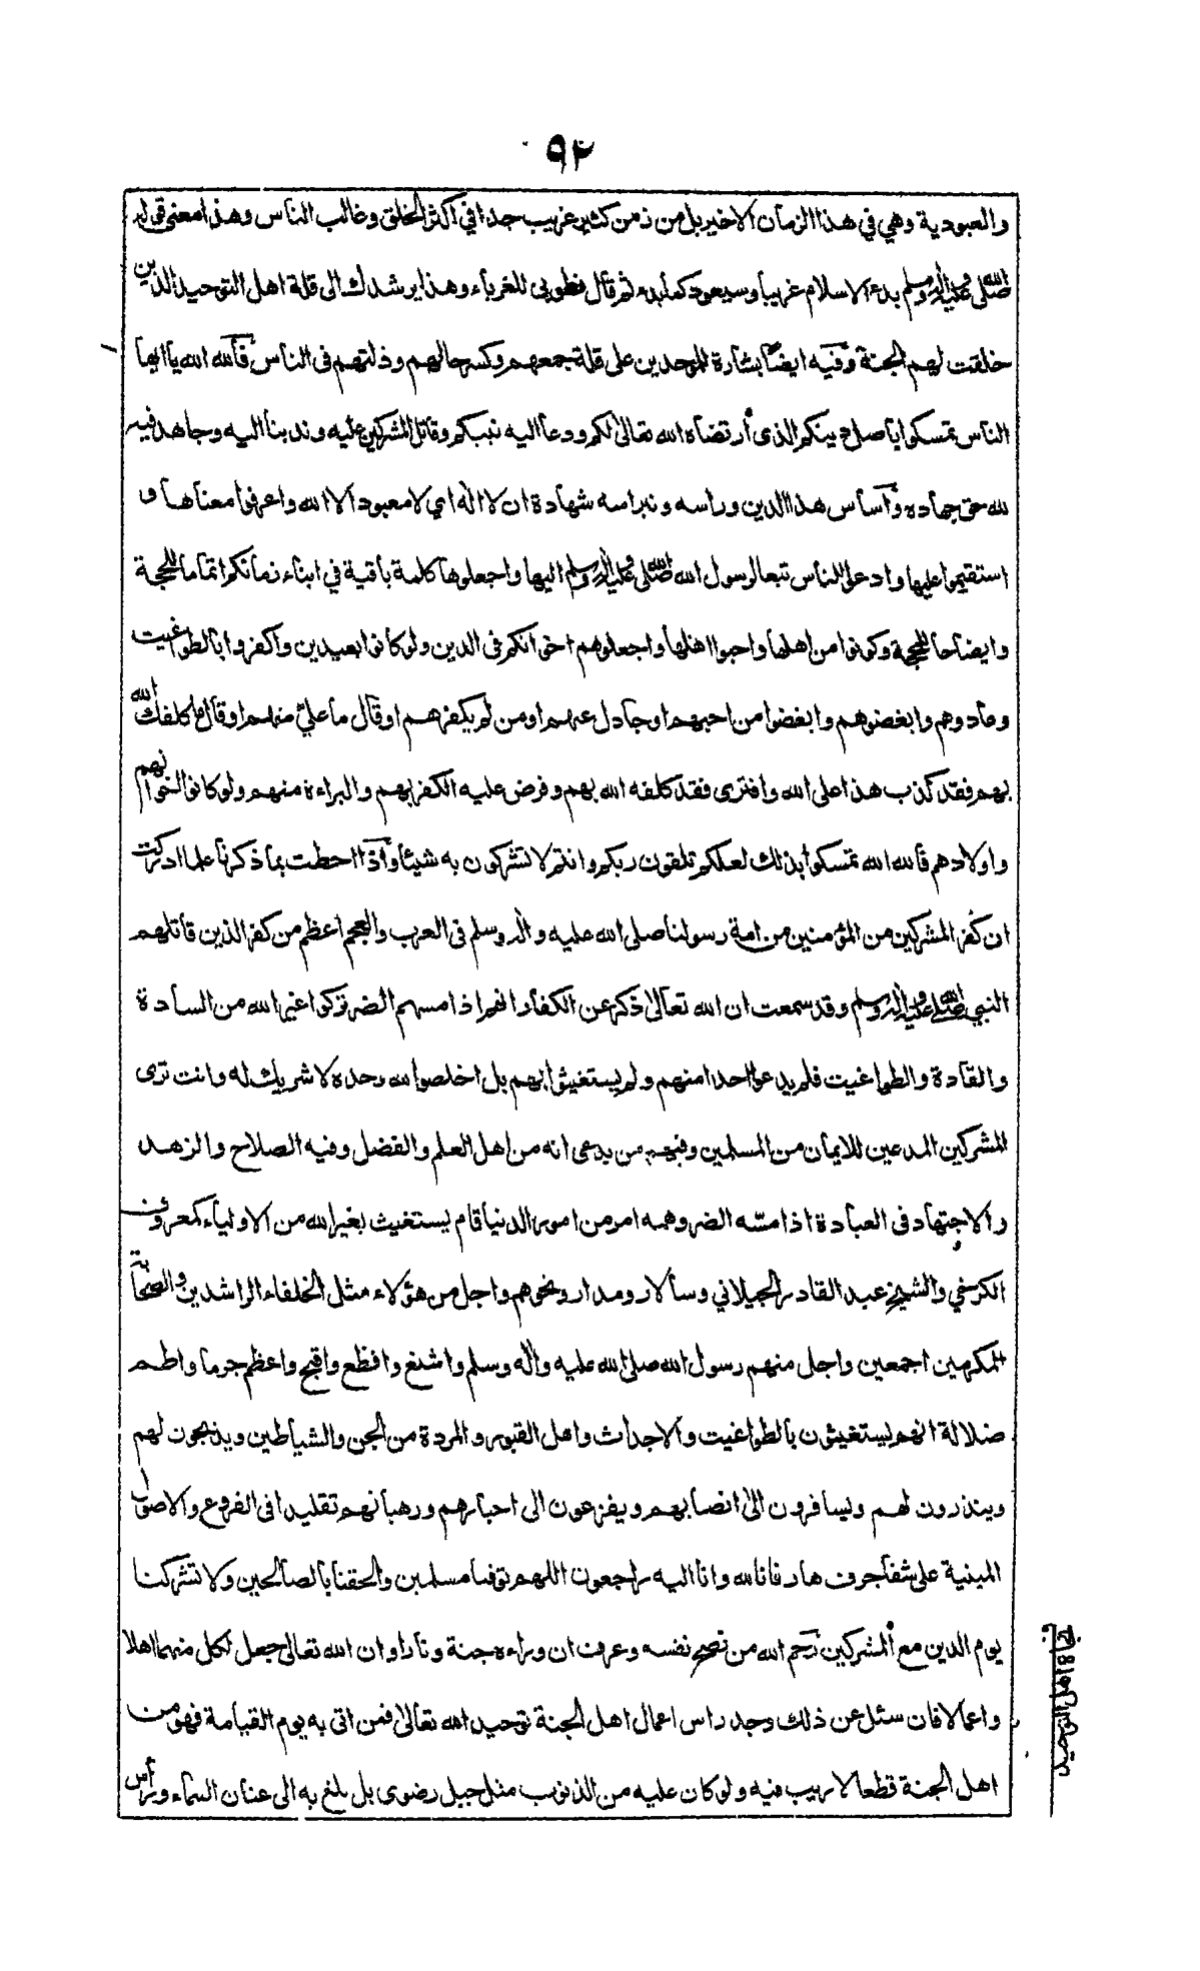 ٩٢
والعبودية وهي في هذا الزمان الاخير بل من زمن كثير غريب جدا في اكثر الخلق وغالب الناس وهذا معنى قوله
صلى الله عليه واله وسلم بدء الاسلام غريبا وسيعود كما بدء ثم قال فطوبى للغرباء وهذا يرشدك الى قلة اهل التوحيد الذين
خلقت لهم الجنة وفيه ايضا بشارة للموحدين على قلة جمعهم وكسر حالهم وذلتهم في الناس فالله الله يا ايها
الناس تمسكوا باصل دينكم الذى ارتضاه الله تعالى لكم ودعا اليه نبيكم وقاتل المشركين عليه وندبنا اليه وجاهد فيه
لله حق جهاده واساس هذا الدين وراسه ونبراسه شهادة ان لا اله اي لا معبود الا الله واعرفوا معناها و
استقيموا عليها وادعوا الناس تبعا لرسول الله صلى الله عليه واله وسلم اليها واجعلوها كلمة باقية في ابناء زمانكم اتماما للحجة
وايضاحا للمحجة وكونوا من اهلها واحبوا اهلها واجعلوهم اخوانكم فى الدين ولو كانوا بعيدين واكفروا بالطواغيت
وعادوهم وابغضوهم وابغضوا من احبهم او جادل عنهم او من لم يكفرهم او قال ما علي منهم او قال ما كلفك الله
بهم فقد كذب هذا على الله وافترى فقد كلفه الله بهم وفرض عليه الكفر بهم والبراءة منهم ولو كانوا اخوانهم
واولادهم فالله الله تمسكوا بذلك لعلكم تلقون ربكم وانتم لا تشركون به شيئا واذا احطت بما ذكرنا علما ادركت
ان كفر المشركين من المؤمنين من امة رسولنا صلى الله عليه واله وسلم فى العرب والعجم اعظم من كفر الذين قاتلهم
النبي صلى الله عليه واله وسلم وقد سمعت ان الله تعالى ذكر عن الكفار انهم اذا مسهم الضر تركوا غير الله من السادة
والقادة والطواغيت فلم يدعوا احدا منهم ولم يستغيثوا بهم بل اخلصوا لله وحده لا شريك له وانت ترى
المشركين المدعين للايمان من المسلمين وفيهم من يدعى انه من اهل العلم والفضل وفيه الصلاح والزهد
والاجتهاد فى العبادة اذا مسّه الضر وهمه امر من امور الدنيا قام يستغيث بغير الله من الاولياء كمعروف
الكرخي والشيخ عبد القادر الجيلاني وسالار ومدار ونحوهم واجل من هؤلاء مثل الخلفاء الراشدين والصحابة
المكرمين اجمعين واجل منهم رسول الله صلى الله عليه واله وسلم واشنع وافظع واقبح واعظم جرما واطم
ضلالة انهم يستغيثون بالطواغيت والاجداث واهل القبور والمردة من الجن والشياطين ويذبحون لهم
وينذرون لهم ويسافرون الى انصابهم ويفزعون الى احبارهم ورهبانهم تقليدا فى الفروع والاصول
المبنية على شفا جرف هار فانا لله وانا اليه راجعون اللهم توفنا مسلمين والحقنا بالصالحين ولا تشركنا
يوم الدين مع المشركين رحم الله من نصح نفسه وعرف ان وراءه جنة ونارا وان الله تعالى جعل لكل منهما اهلا
واعمالا فان سئل عن ذلك وجد راس اعمال اهل الجنة توحيد الله تعالى فمن اتى به يوم القيامة فهو من
اهل الجنة قطعا لا ريب فيه ولو كان عليه من الذنوب مثل جبل رضوى بل بلغ به الى عنان السماء وراس